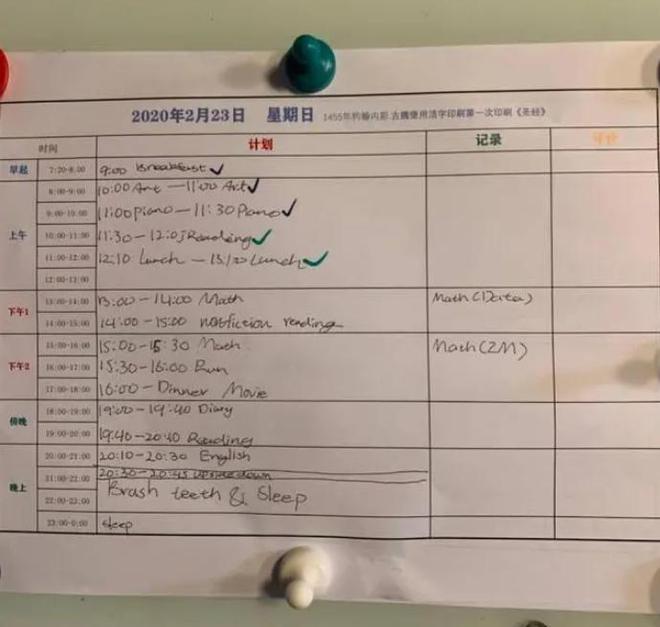 2020年2月23日 星期日 1455年约翰内斯·古腾堡用活字印刷第一次印刷《圣经》
时间 计划 记录 评价
早起 7:20-8:00 9:00 Breakfast ✓
上午 8:00-9:00 10:00 Art — 11:00 Art ✓
9:00-10:00 11:00 piano — 11:30 Piano ✓
10:00-11:00 11:30 - 12:0 Reading ✓
11:00-12:00 12:10 Lunch — Lunch ✓
12:00-13:00
下午1 13:00-14:00 13:00 - 14:00 Math Math (Data)
14:00-15:00 14:00 - 15:00 nonfiction reading
下午2 15:00-16:00 15:00 - 15:30 Math Math (2M)
16:00-17:00 15:30 - 16:00 Run
17:00-18:00 16:00 - Dinner Movie
傍晚 18:00-19:00 19:00 - 19:40 Diary
19:00-20:00 19:40 - 20:10 Reading
晚上 20:00-21:00 20:10 - 20:30 English
21:00-22:00 20:30 - 20:45
22:00-23:00 Brash teeth & Sleep
23:00-0:00 sleep